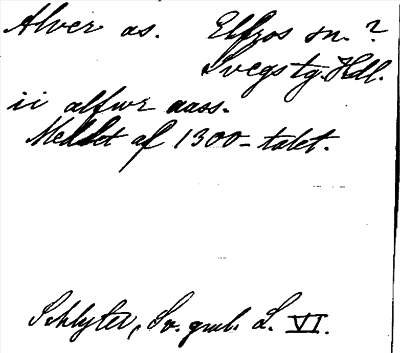 Alver as. Elfros sn. ?
Svegs tg. Hdl.
ii alfwr aass.
Medlet af 1300-talet.
Schlyter, Sv. gml. L. VI.